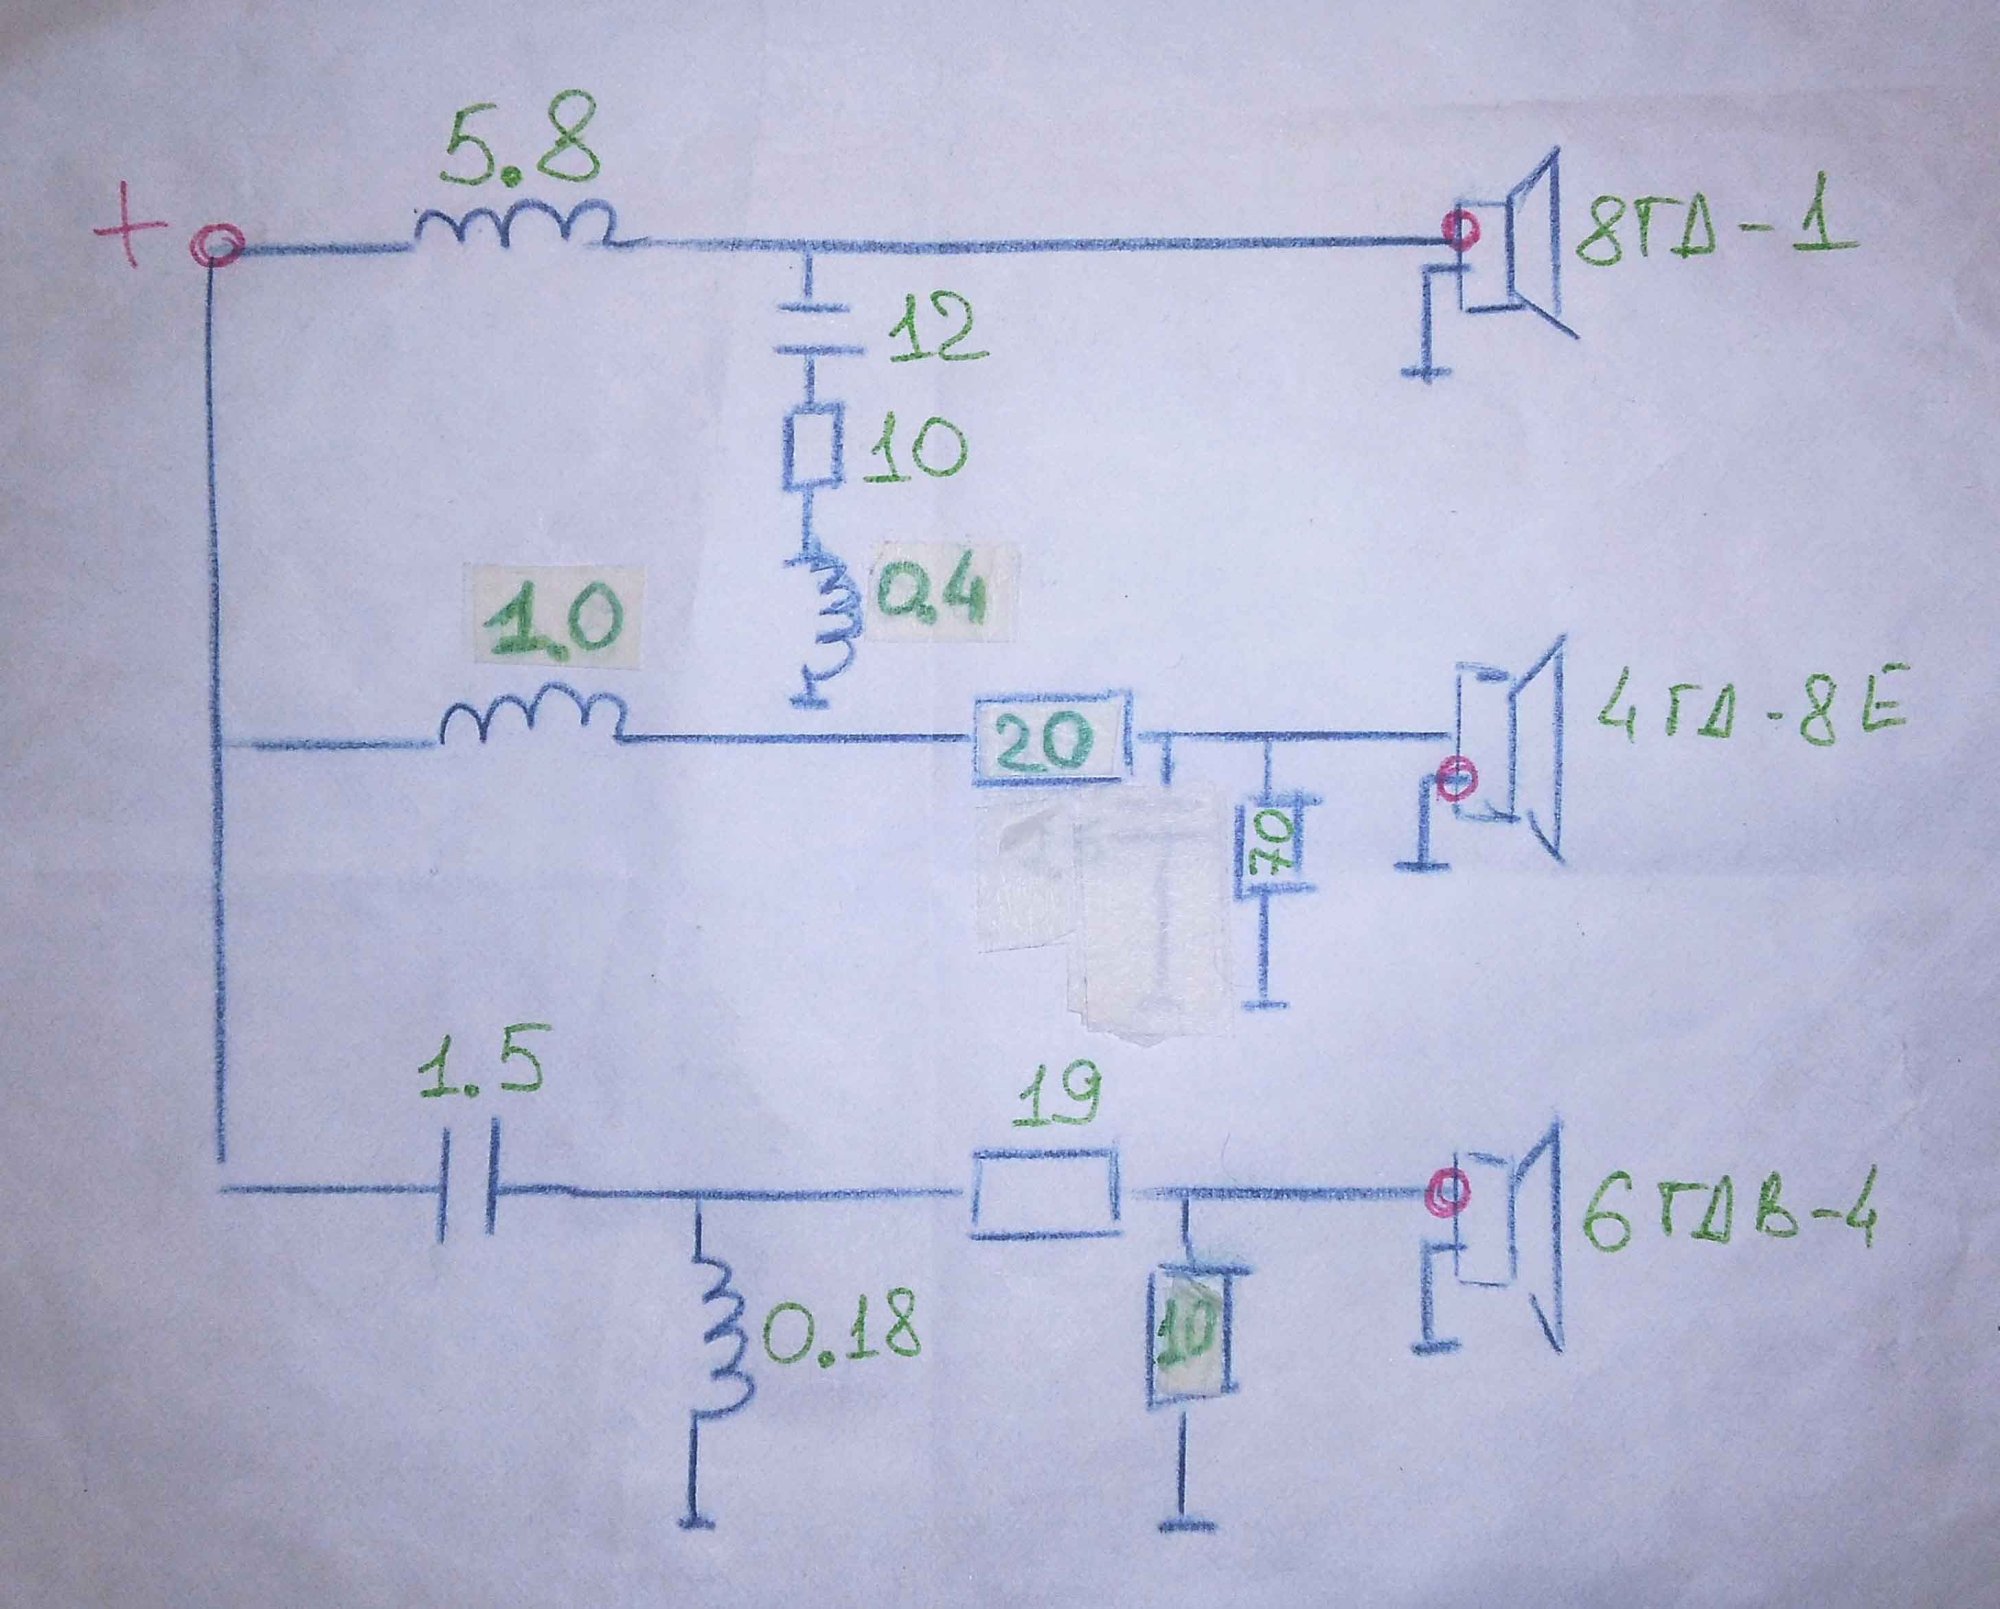 5.8
+
8ГД-1
12
10
0.4
1.0
20
4ГД-8Е
70
1.5
19
6ГДВ-4
0.18
10